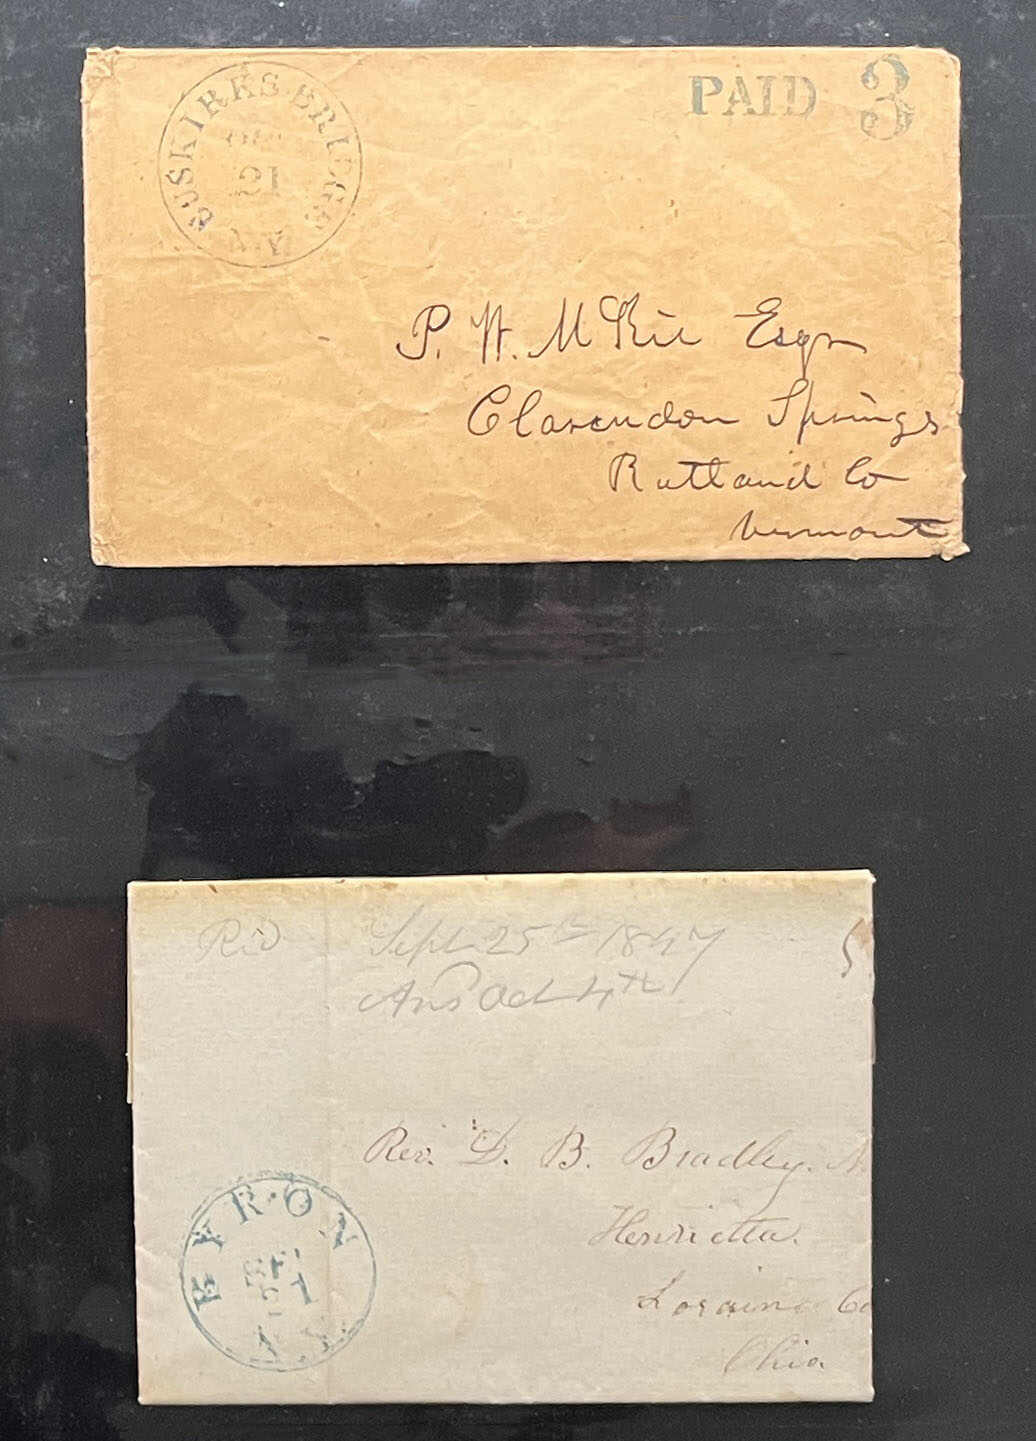 BUSKIRKS BRIDGE
21
N.Y
PAID 3
P. W. McKie Esqr
Clarendon Springs
Rutland Co
Vermont
Rec'd Sept. 25th 1847
Ans Oct 4th
5
Rev. D. B. Bradley.
Henrietta.
Loraine Co
Ohio
BYRON